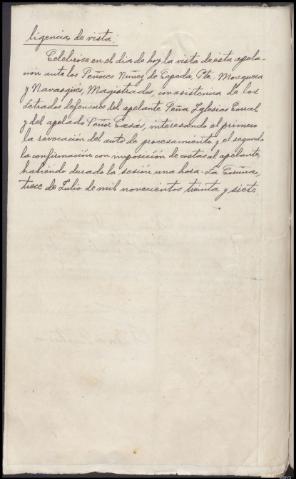 ligencia de vista:
Celebrose en el dia de hoy la vista de esta apela-
ción ante los Señores Nuñez de Cepeda, Pte, Marquesa
y Navasqüés, Magistrados, con asistencia de los
letrados defensores del apelante Peña, Iglesias Corral
y del apelado Señor Casás, interesando el primero
la revocación del auto de procesamiento y el segundo
la confirmación con imposición de costas al apelante,
habiendo durado la sesión una hora. La Coruña,
trece de Julio de mil novecientos treinta y siete